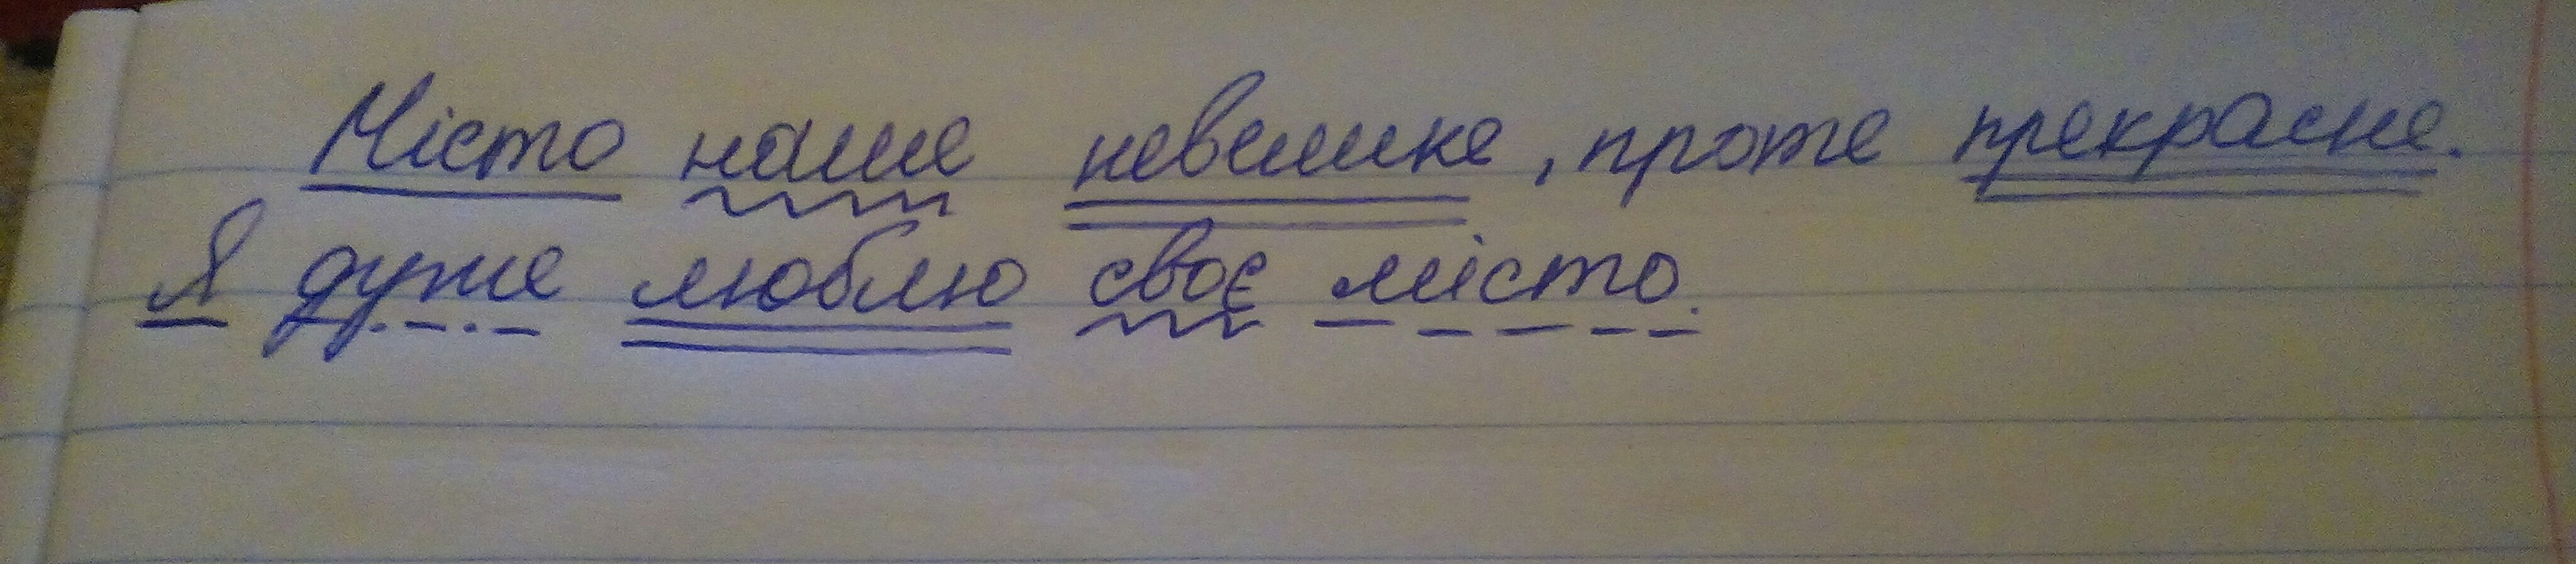 Місто наше невелике, проте прекрасне.
Я дуже люблю своє місто.